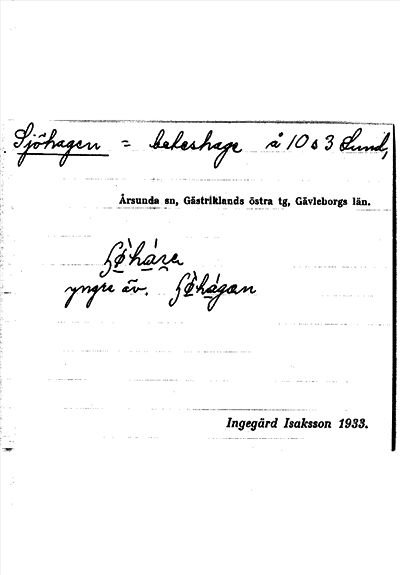 Sjöhagen = beteshage å 10 o 3 Lund,
Årsunda sn, Gästriklands östra tg, Gävleborgs län.
yngre äv.
Ingegärd Isaksson 1933.